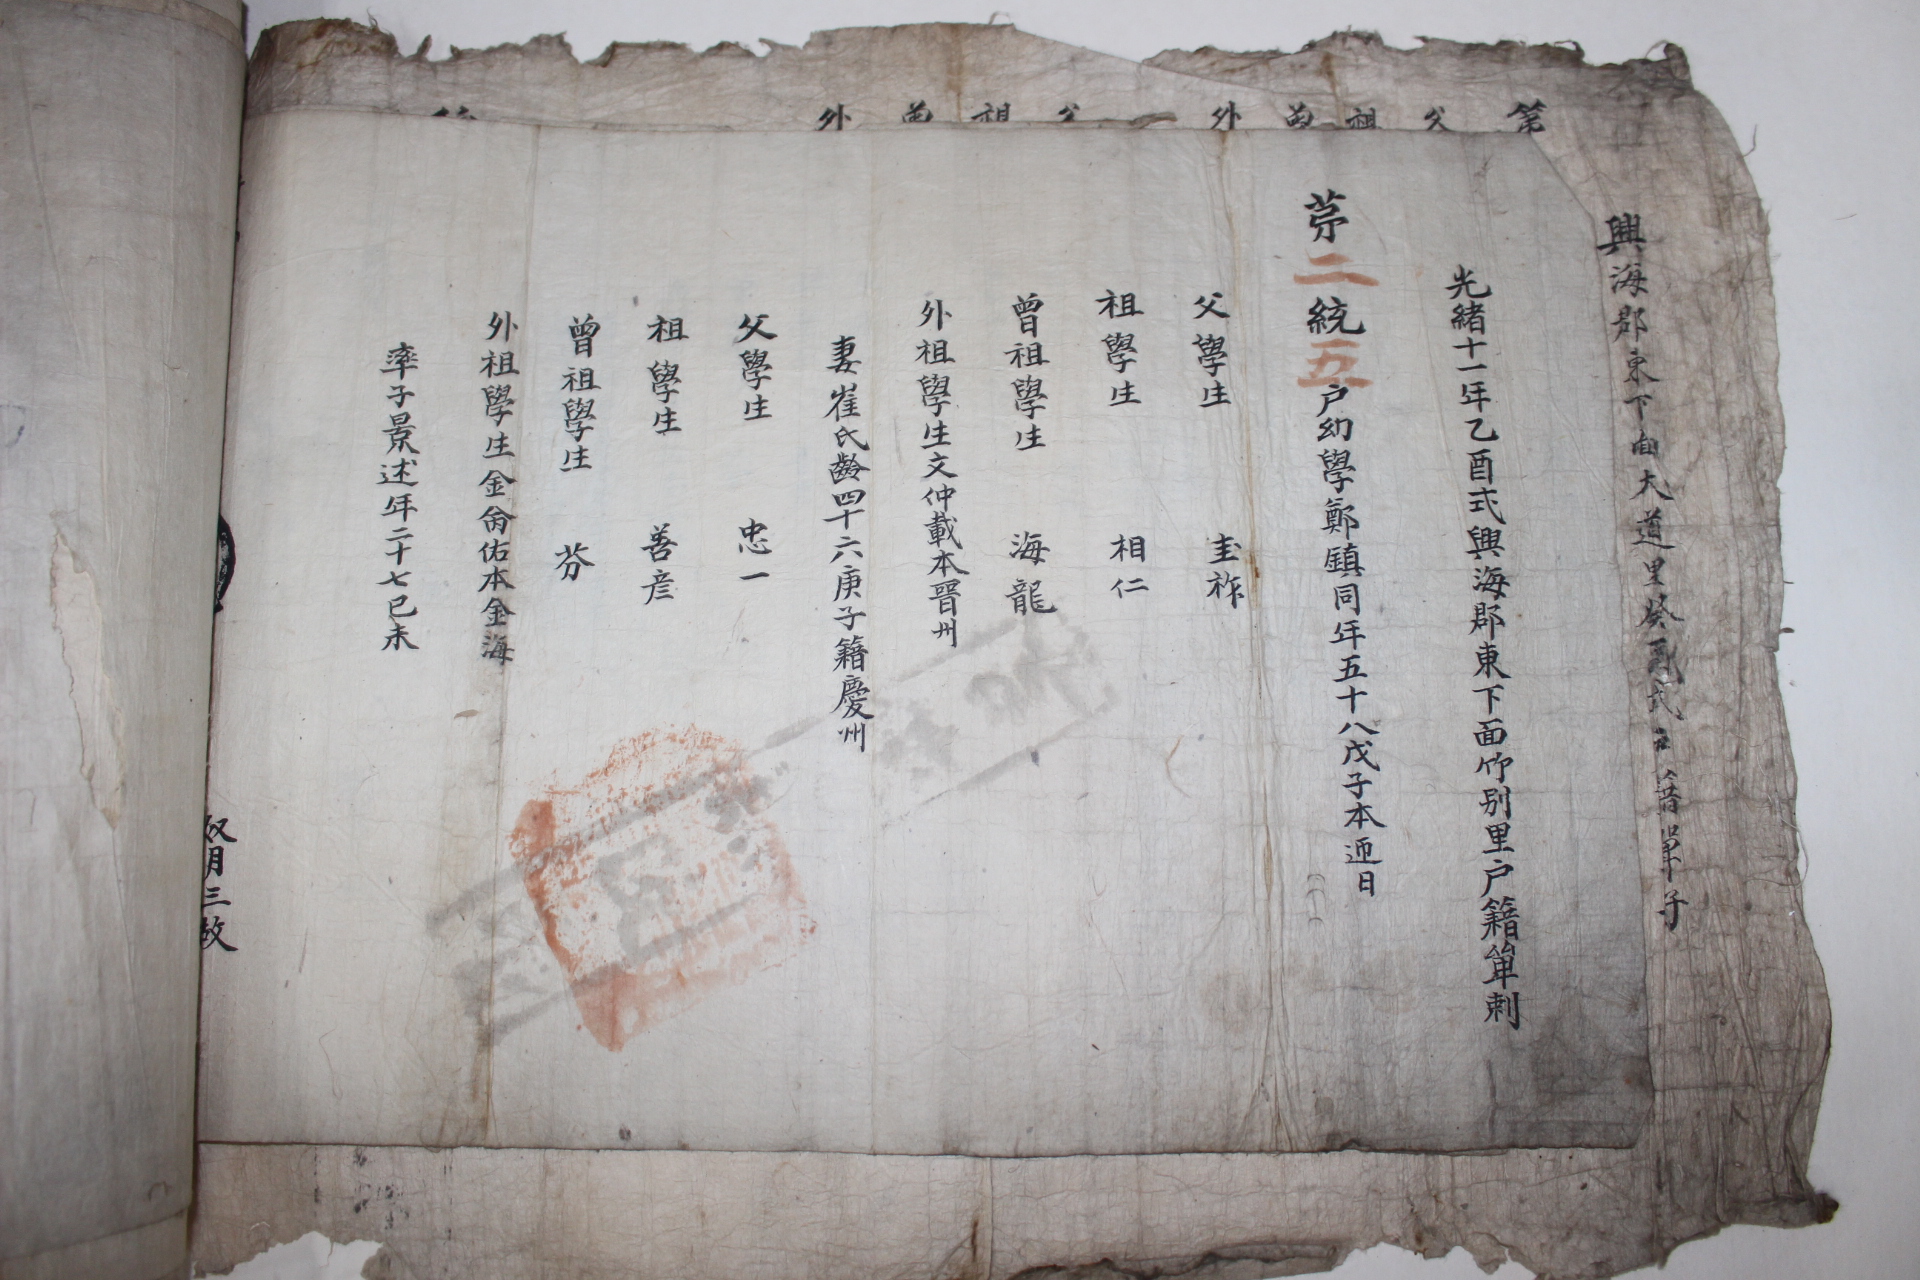 興海郡東下面大道里癸酉式戶籍單子
第 父 祖 曾 外 父 祖 曾 外
光緖十一年乙酉式興海郡東下面竹別里戶籍單刺
苐二統五戶幼學鄭鎭同年五十八戊子本迎日
父學生 圭祚
祖學生 相仁
曾祖學生 海龍
外祖學生文仲載本晉州
妻崔氏齡四十六庚子籍慶州
父學生 忠一
祖學生 善彦
曾祖學生 芬
外祖學生金佑本金海
率子景述年二十七己未
奴月三故